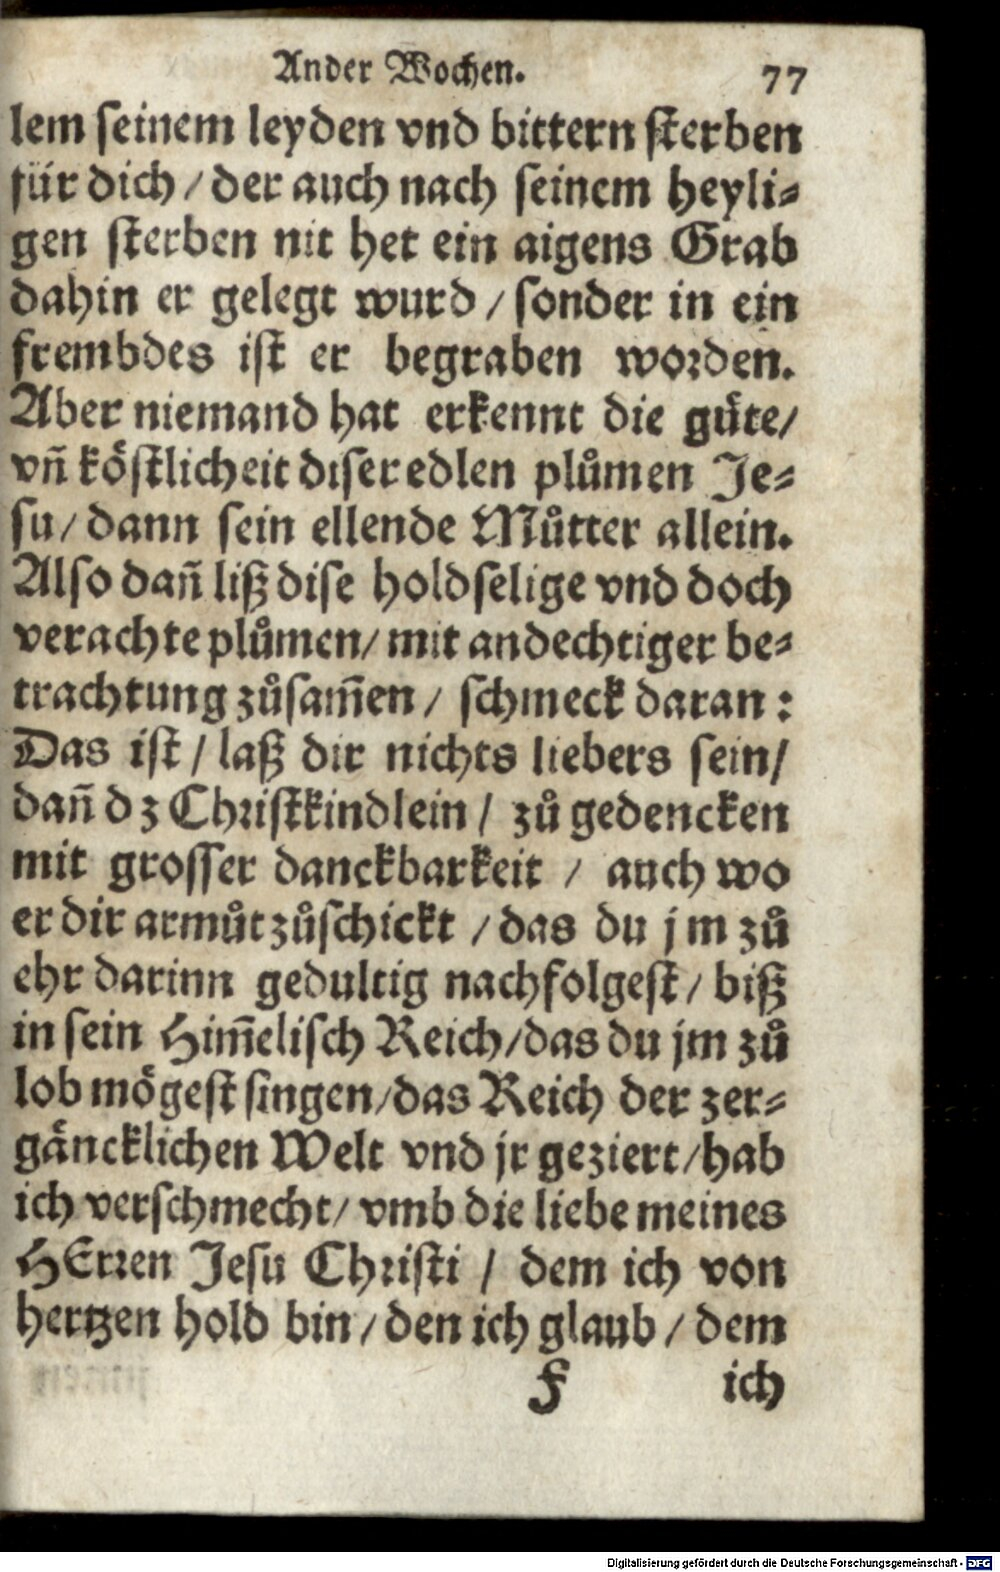 Ander Wochen. 77
lem seinem leyden vnd bittern sterben
für dich / der auch nach seinem heyli⸗
gen sterben nit het ein aigens Grab
dahin er gelegt wurd / sonder in ein
frembdes ist er begraben worden.
Aber niemand hat erkennt die gůte /
vñ köstlicheit diser edlen plůmen Je⸗
su / dann sein ellende Můtter allein.
Also dañ liß dise holdselige vnd doch
verachte plůmen / mit andechtiger be⸗
trachtung zůsam̃en / schmeck daran :
Das ist / laß dir nichts liebers sein /
dañ dz Christkindlein / zů gedencken
mit grosser danckbarkeit / auch wo
er dir armůt zůschickt / das du jm zů
ehr darinn gedultig nachfolgest / biß
in sein Him̃elisch Reich / das du jm zů
lob mögest singen / das Reich der zer⸗
gäncklichen Welt vnd jr geziert / hab
ich verschmecht / vmb die liebe meines
HErren Jesu Christi / dem ich von
hertzen hold bin / den ich glaub / dem
F ich
Digitalisierung gefördert durch die Deutsche Forschungsgemeinschaft - DFG